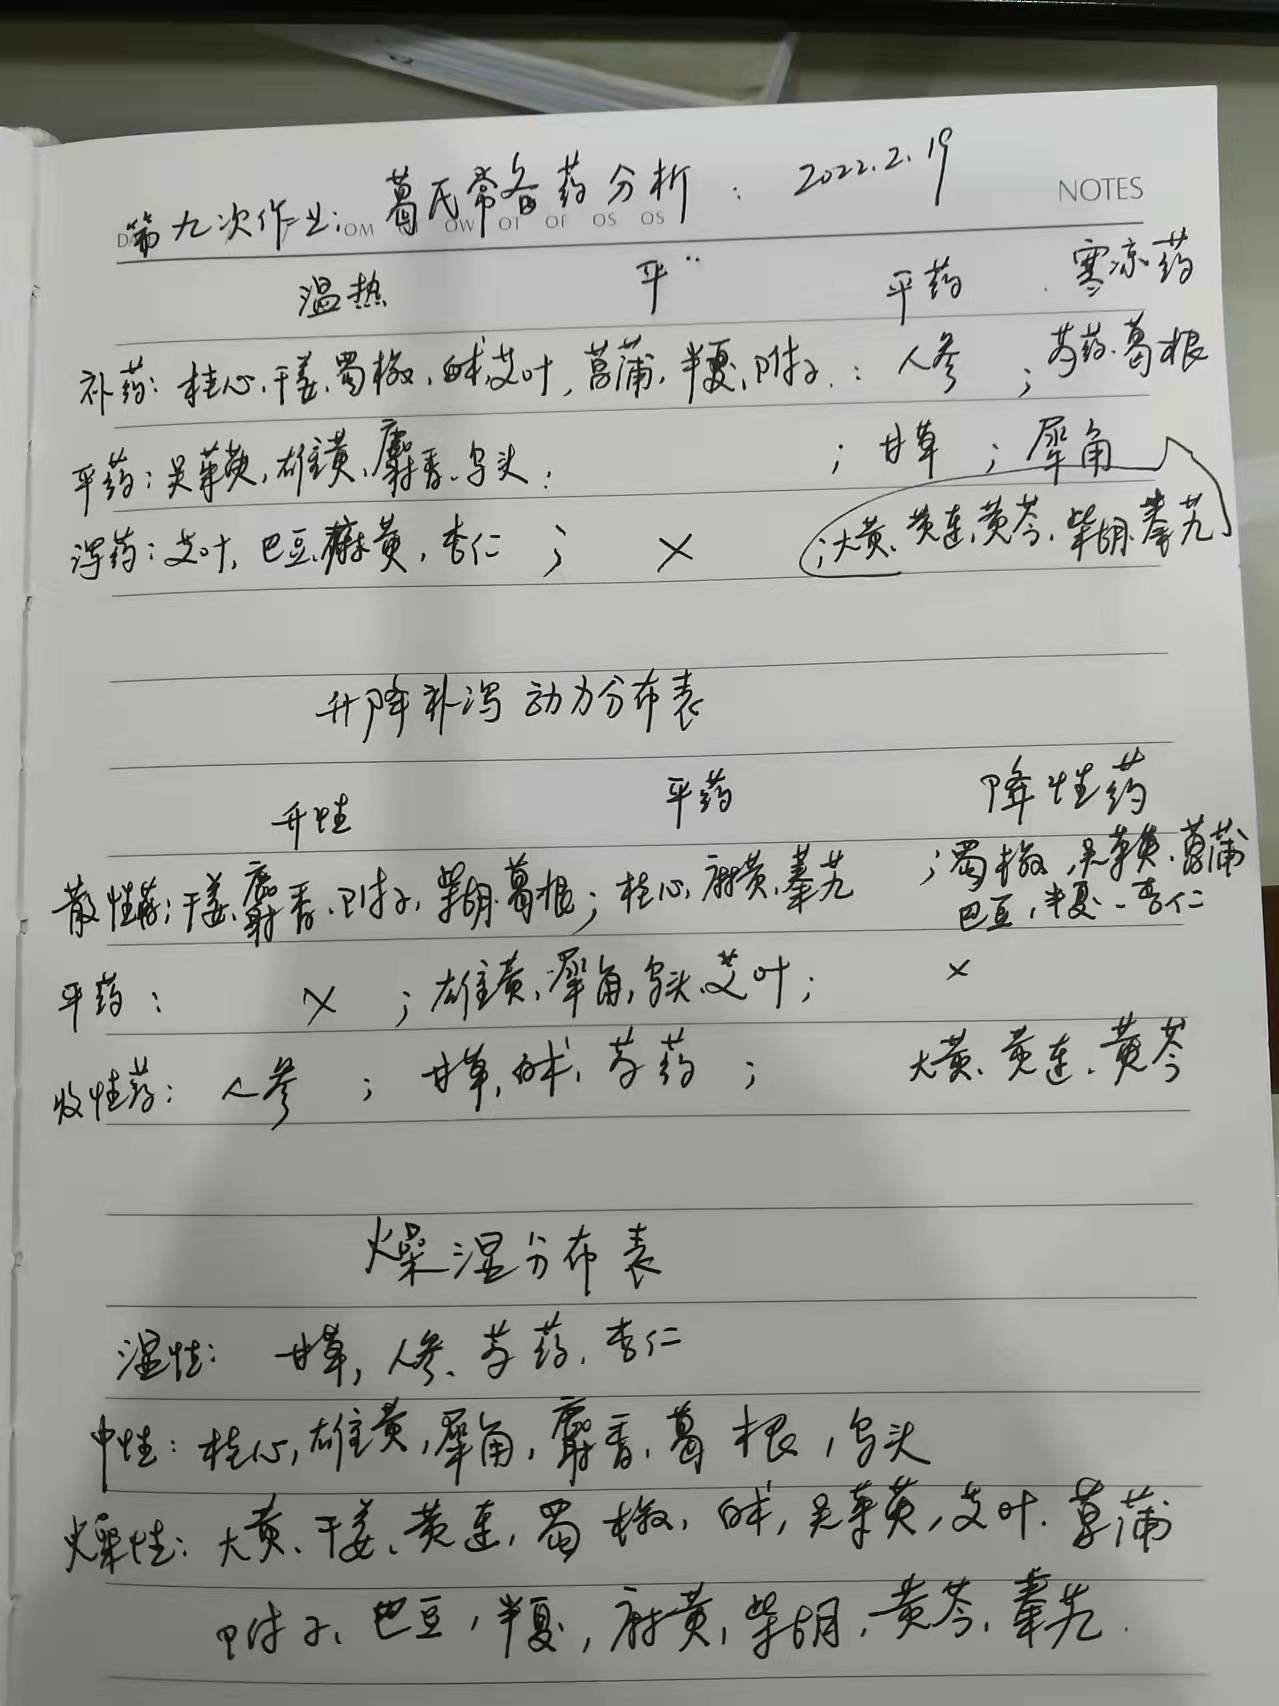 第九次作业:葛氏常备药分析: 2022.2.19
NOTES
温热 平 平药 寒凉药
补药:桂心、干姜、蜀椒、白术、艾叶,菖蒲,半夏、附子.:人参;芍药、葛根
平药:吴茱萸,雄黄、麝香、乌头; ;甘草;犀角
泻药:艾叶,巴豆、麻黄,杏仁; × ;大黄、黄连、黄芩,柴胡、秦艽
升降补泻动力分布表
升性 平药 降性药
散性药:干姜、麝香、附子,柴胡、葛根;桂心,麻黄、秦艽 ;蜀椒,吴茱萸、菖蒲
巴豆,半夏、杏仁
平药: × ;雄黄、犀角,乌头、艾叶; ×
收性药:人参 ;甘草,白术,芍药; 大黄、黄连、黄芩
燥湿分布表
湿性: 甘草,人参、芍药,杏仁
中性:桂心,雄黄,犀角,麝香、葛根,乌头
燥性:大黄、干姜、黄连,蜀椒,白术,吴茱萸,艾叶.菖蒲
附子、巴豆,半夏,麻黄,柴胡,黄芩、秦艽.